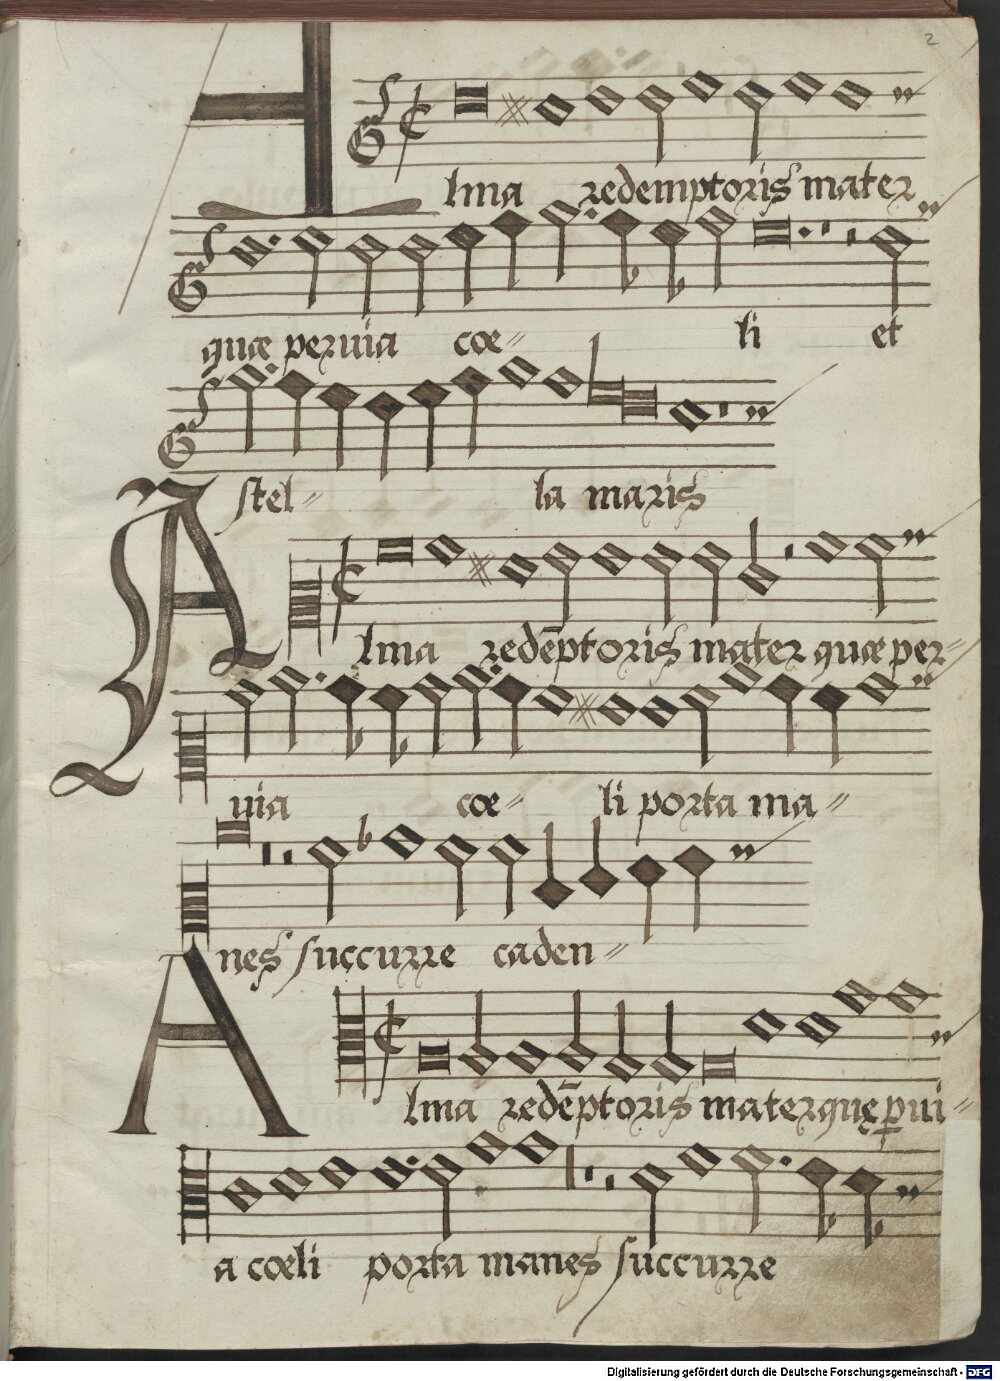 2
Alma redemptoris mater
quæ peruia cœ- li et
stel- la maris
Alma redēptoris mater quæ per-
uia cœ- li porta ma-
nes succurre caden-
Alma redēptoris mater quę pui-
a cœli porta manes succurre
Digitalisierung gefördert durch die Deutsche Forschungsgemeinschaft - DFG